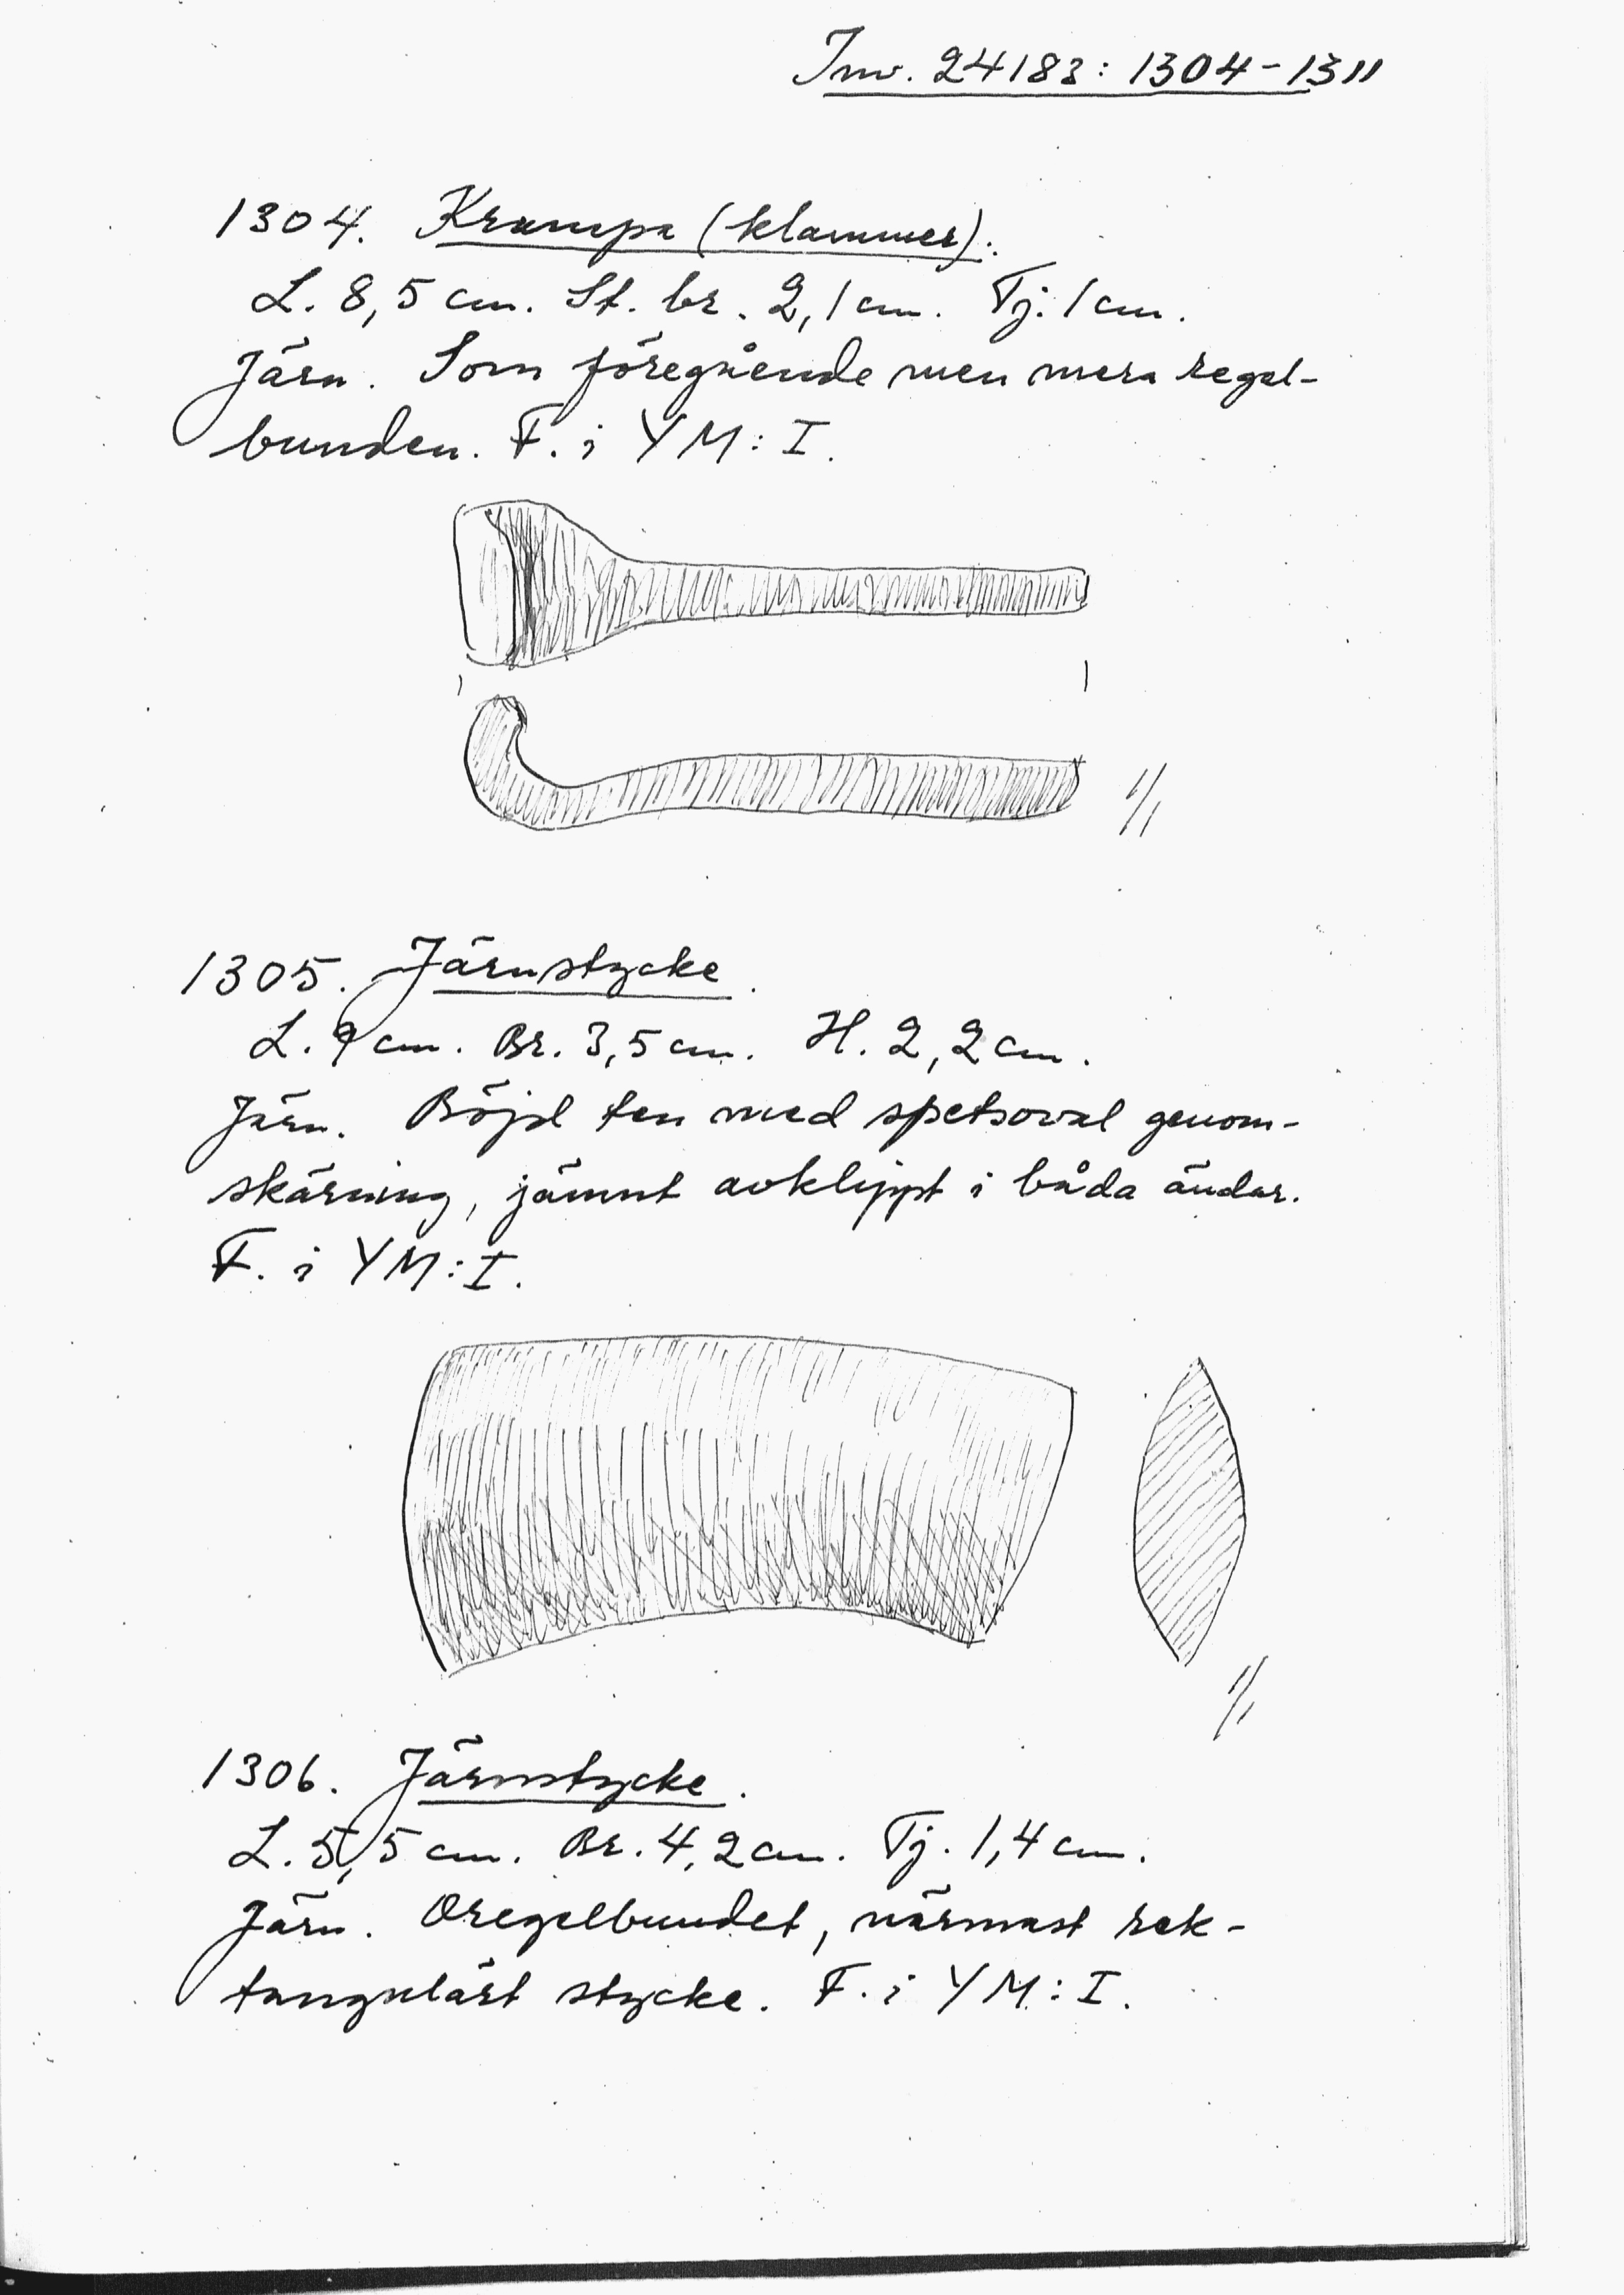 Inv. 24183: 1304-1311
1304. Krampa (klammer).
L. 8,5 cm. St. br. 2,1 cm. Tj. 1 cm.
Järn. Som föregående men mera regel-
bunden. F. i YM: I.
1/1
1305. Järnstycke.
L. 9 cm. Br. 3,5 cm. H. 2,2 cm.
Järn. Böjd ten med spetsoval genom-
skärning, jämnt avklippt i båda ändar.
F. i YM: I.
1/1
1306. Järnstycke.
L. 5,5 cm. Br. 4,2 cm. Tj. 1,4 cm.
Järn. Oregelbundet, närmast rek-
tangulärt stycke. F. i YM: I.